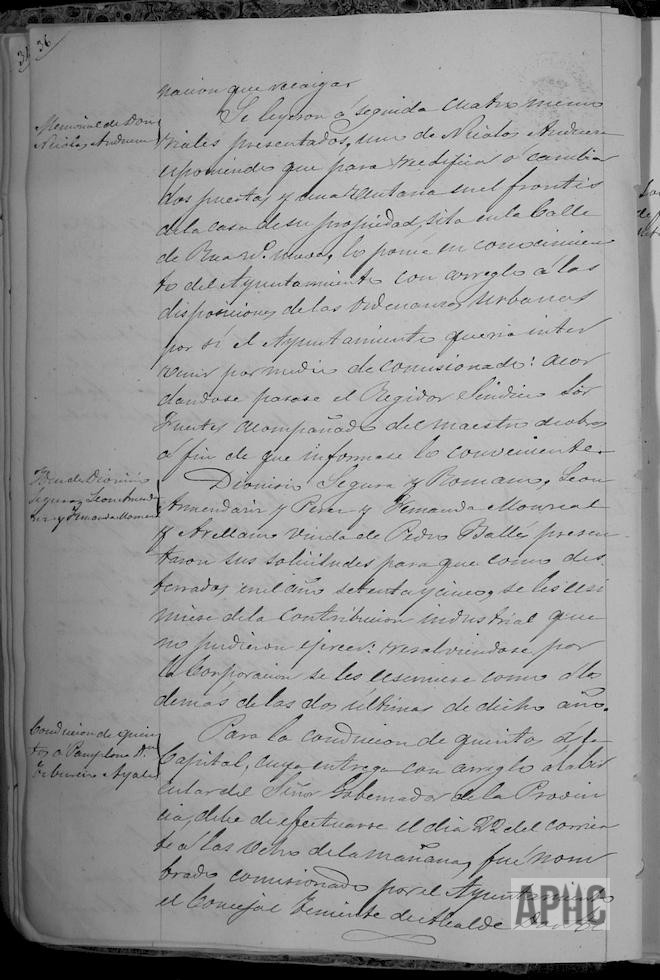 36
nacion que recaiga.
Memorial de Don
Nicolas Andueza
Se leyeron á seguida cuatro memo
riales presentados, uno de Nicolas Andueza
esponiendo que para redificar ó cambiar
dos puertas y una ventana en el frontis
de la casa de su propiedad, sita en la Calle
de Rua nueva, lo ponia en conocimien
to del Ayuntamiento con arreglo á las
disposiciones de las Ordenanzas Urbanas
por si el Ayuntamiento queria inter
venir por medio de comisionado: acor
dandose pasase el Regidor Sindico Sor
Fuentes acompañado del maestro de obras
á fin de que informase lo conveniente.
Yden de Dionisio
Segura, Leon Armenda
riz y Fernanda Monreal
Dionisio Segura y Romano, Leon
Armendariz y Perez y Fernanda Monreal
y Arellano viuda de Pedro Ballés presen
taron sus solicitudes para que como des
terrados en el año setenta y cinco, se les esi
miese de la contribucion industrial que
no pudieron ejercer: resolviendose por
la Corporacion se les esimiese como á los
demás de las dos últimas de dicho año.
Conducion de quin
tos a Pamplona Dn
Tiburcio Ayala
Para la conducion de quintos á la
Capital, cuya entrega con arreglo á la cir
cular del Señor Gobernador de la Provin
cia, debe de efectuarse el dia 22 del corrien
te á las ocho de la mañana, fué nom
brado comisionado por el Ayuntamiento
el Concejal Teniente de Alcalde
APHC